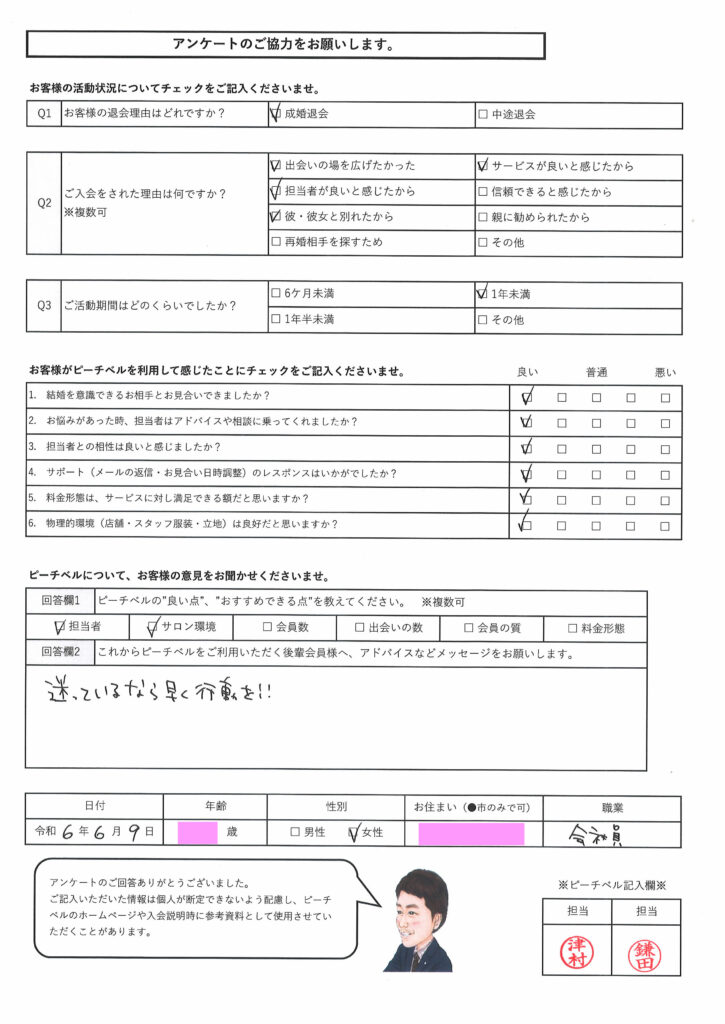 アンケートのご協力をお願いします。
お客様の活動状況についてチェックをご記入くださいませ。
Q1 お客様の退会理由はどれですか？ ☑ 成婚退会 □ 中途退会
Q2 ご入会をされた理由は何ですか？ ※複数可
☑ 出会いの場を広げたかった ☑ サービスが良いと感じたから
☑ 担当者が良いと感じたから □ 信頼できると感じたから
☑ 彼・彼女と別れたから □ 親に勧められたから
□ 再婚相手を探すため □ その他
Q3 ご活動期間はどのくらいでしたか？
□ 6ケ月未満 ☑ 1年未満
□ 1年半未満 □ その他
お客様がピーチベルを利用して感じたことにチェックをご記入くださいませ。 良い 普通 悪い
1. 結婚を意識できるお相手とお見合いできましたか？ ☑ □ □ □ □
2. お悩みがあった時、担当者はアドバイスや相談に乗ってくれましたか？ ☑ □ □ □ □
3. 担当者との相性は良いと感じましたか？ ☑ □ □ □ □
4. サポート（メールの返信・お見合い日時調整）のレスポンスはいかがでしたか？ ☑ □ □ □ □
5. 料金形態は、サービスに対し満足できる額だと思いますか？ ☑ □ □ □ □
6. 物理的環境（店舗・スタッフ服装・立地）は良好だと思いますか？ ☑ □ □ □ □
ピーチベルについて、お客様の意見をお聞かせくださいませ。
回答欄1 ピーチベルの"良い点"、"おすすめできる点"を教えてください。 ※複数可
☑ 担当者 ☑ サロン環境 □ 会員数 □ 出会いの数 □ 会員の質 □ 料金形態
回答欄2 これからピーチベルをご利用いただく後輩会員様へ、アドバイスなどメッセージをお願いします。
迷っているなら早く行動を!!
日付 年齢 性別 お住まい（●市のみで可） 職業
令和 6 年 6 月 9 日 歳 □ 男性 ☑ 女性 会社員
アンケートのご回答ありがとうございました。
ご記入いただいた情報は個人が断定できないよう配慮し、ピーチ
ベルのホームページや入会説明時に参考資料として使用させてい
ただくことがあります。
※ピーチベル記入欄※
担当 担当
津村 鎌田